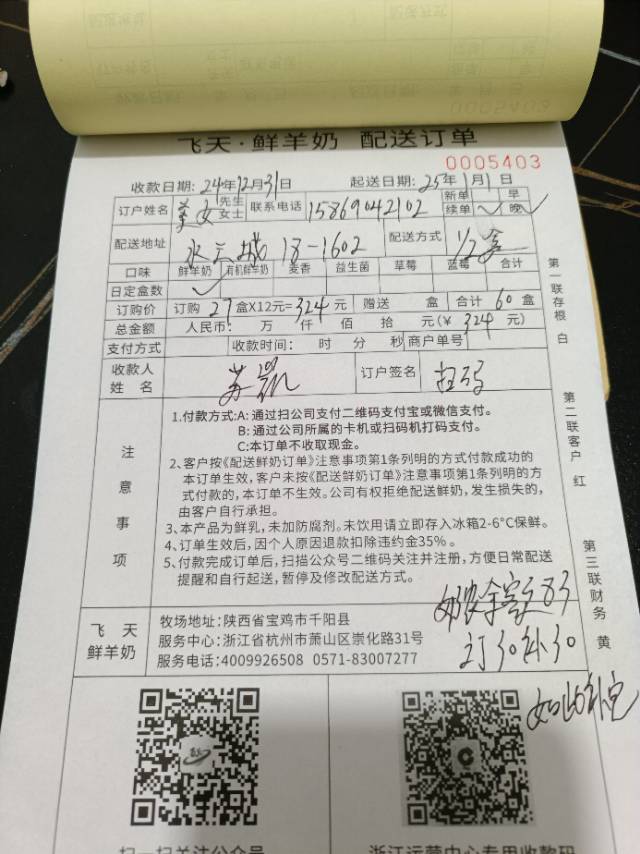 飞天·鲜羊奶 配送订单
0005403
收款日期:24年12月31日 起送日期:25年1月1日
订户姓名 美女 先生 女士 联系电话 15869042102 新单 早 续单 晚
配送地址 水云城 18-1602 配送方式 1/2盒
口味 鲜羊奶 有机鲜羊奶 麦香 益生菌 草莓 蓝莓 合计
日定盒数 ✓
订购价 订购 27 盒X12元=324元 赠送 盒 合计 60 盒
总金额 人民币: 万 仟 佰 拾 元(¥ 324 元)
支付方式 收款时间: 时 分 秒 商户单号
收款人姓名 订户签名 扫码
注意事项
1.付款方式:A:通过扫公司支付二维码支付宝或微信支付。
B:通过公司所属的卡机或扫码机打码支付。
C:本订单不收取现金。
2、客户按《配送鲜奶订单》注意事项第1条列明的方式付款成功的
本订单生效,客户未按《配送鲜奶订单》注意事项第1条列明的方
式付款的,本订单不生效。公司有权拒绝配送鲜奶,发生损失的,
由客户自行承担。
3、本产品为鲜乳,未加防腐剂。未饮用请立即存入冰箱2-6°C保鲜。
4、订单生效后,因个人原因退款扣除违约金35%。
5、付款完成订单后,扫描公众号二维码关注并注册,方便日常配送
提醒和自行起送,暂停及修改配送方式。
订30补30
飞天鲜羊奶
牧场地址:陕西省宝鸡市千阳县
服务中心:浙江省杭州市萧山区崇化路31号
服务电话:4009926508 0571-83007277
第一联存根 白
第二联客户 红
第三联财务 黄
扫一扫关注公众号
浙江运营中心专用收款码